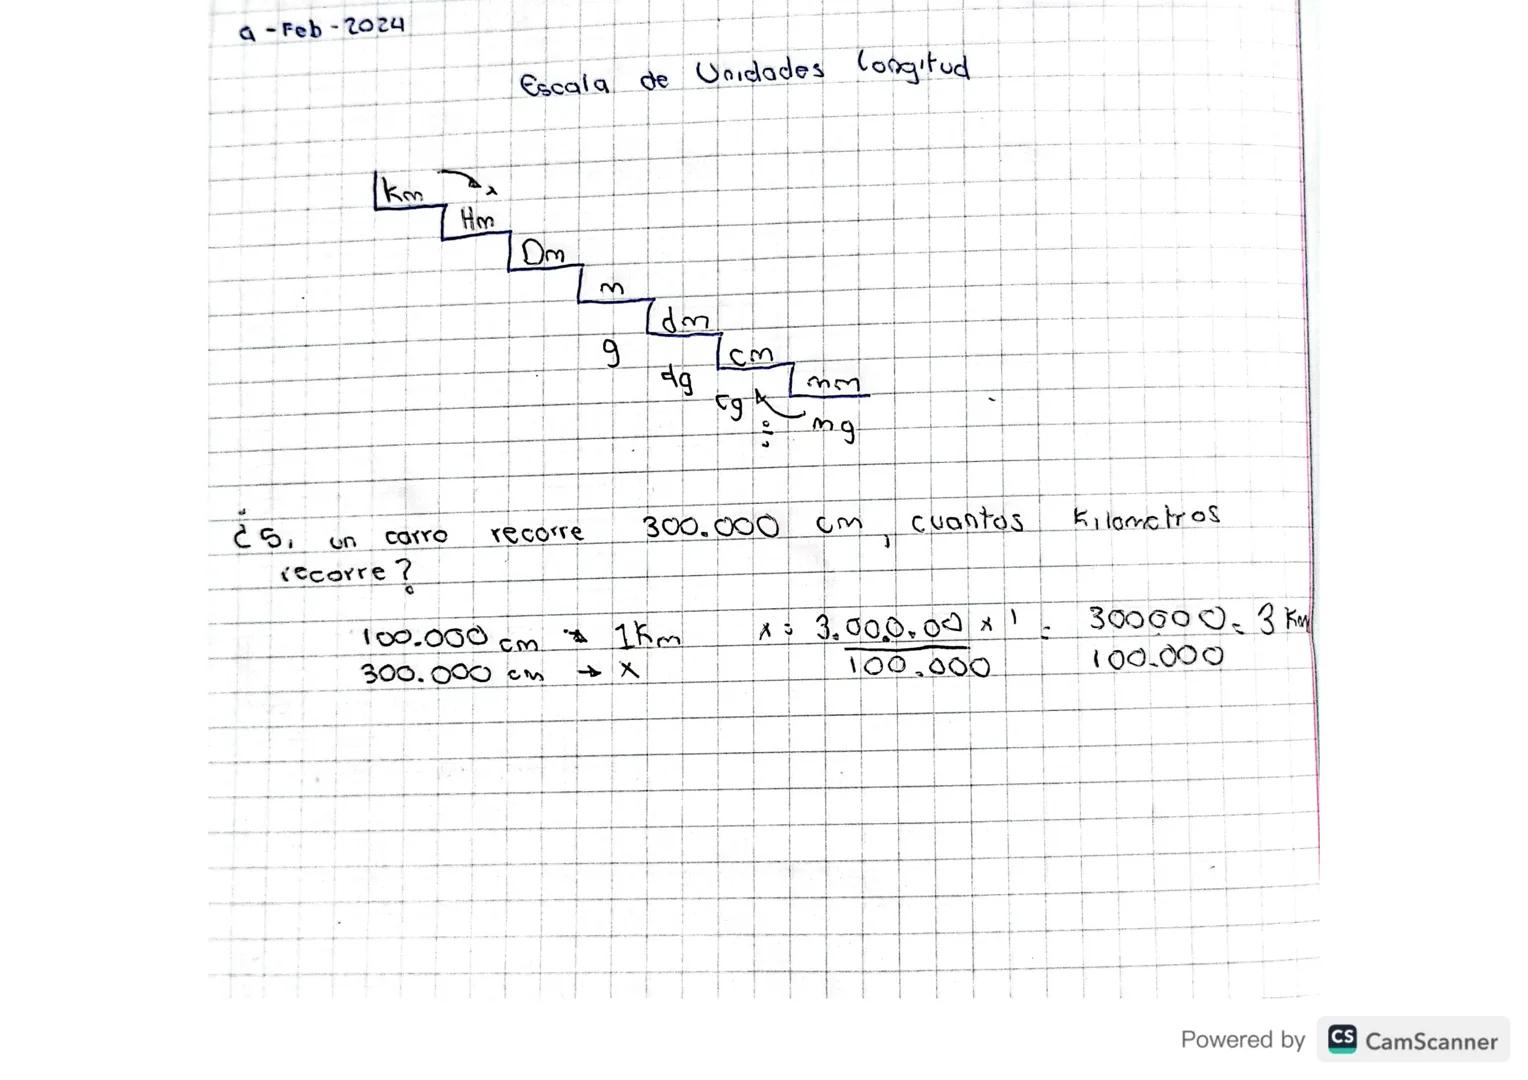 9-Feb-2024
Escala de Unidades Longitud
Km x
Hm
Dm
m
dm
g cm
dg mm
cg ÷ mg
¿Si un carro recorre 300.000 cm, cuantos Kilometros
recorre?
100.000 cm → 1Km x = 3.000.00 x 1 = 300000 = 3 Km
300.000 cm → x 100.000 100.000
Powered by CS CamScanner